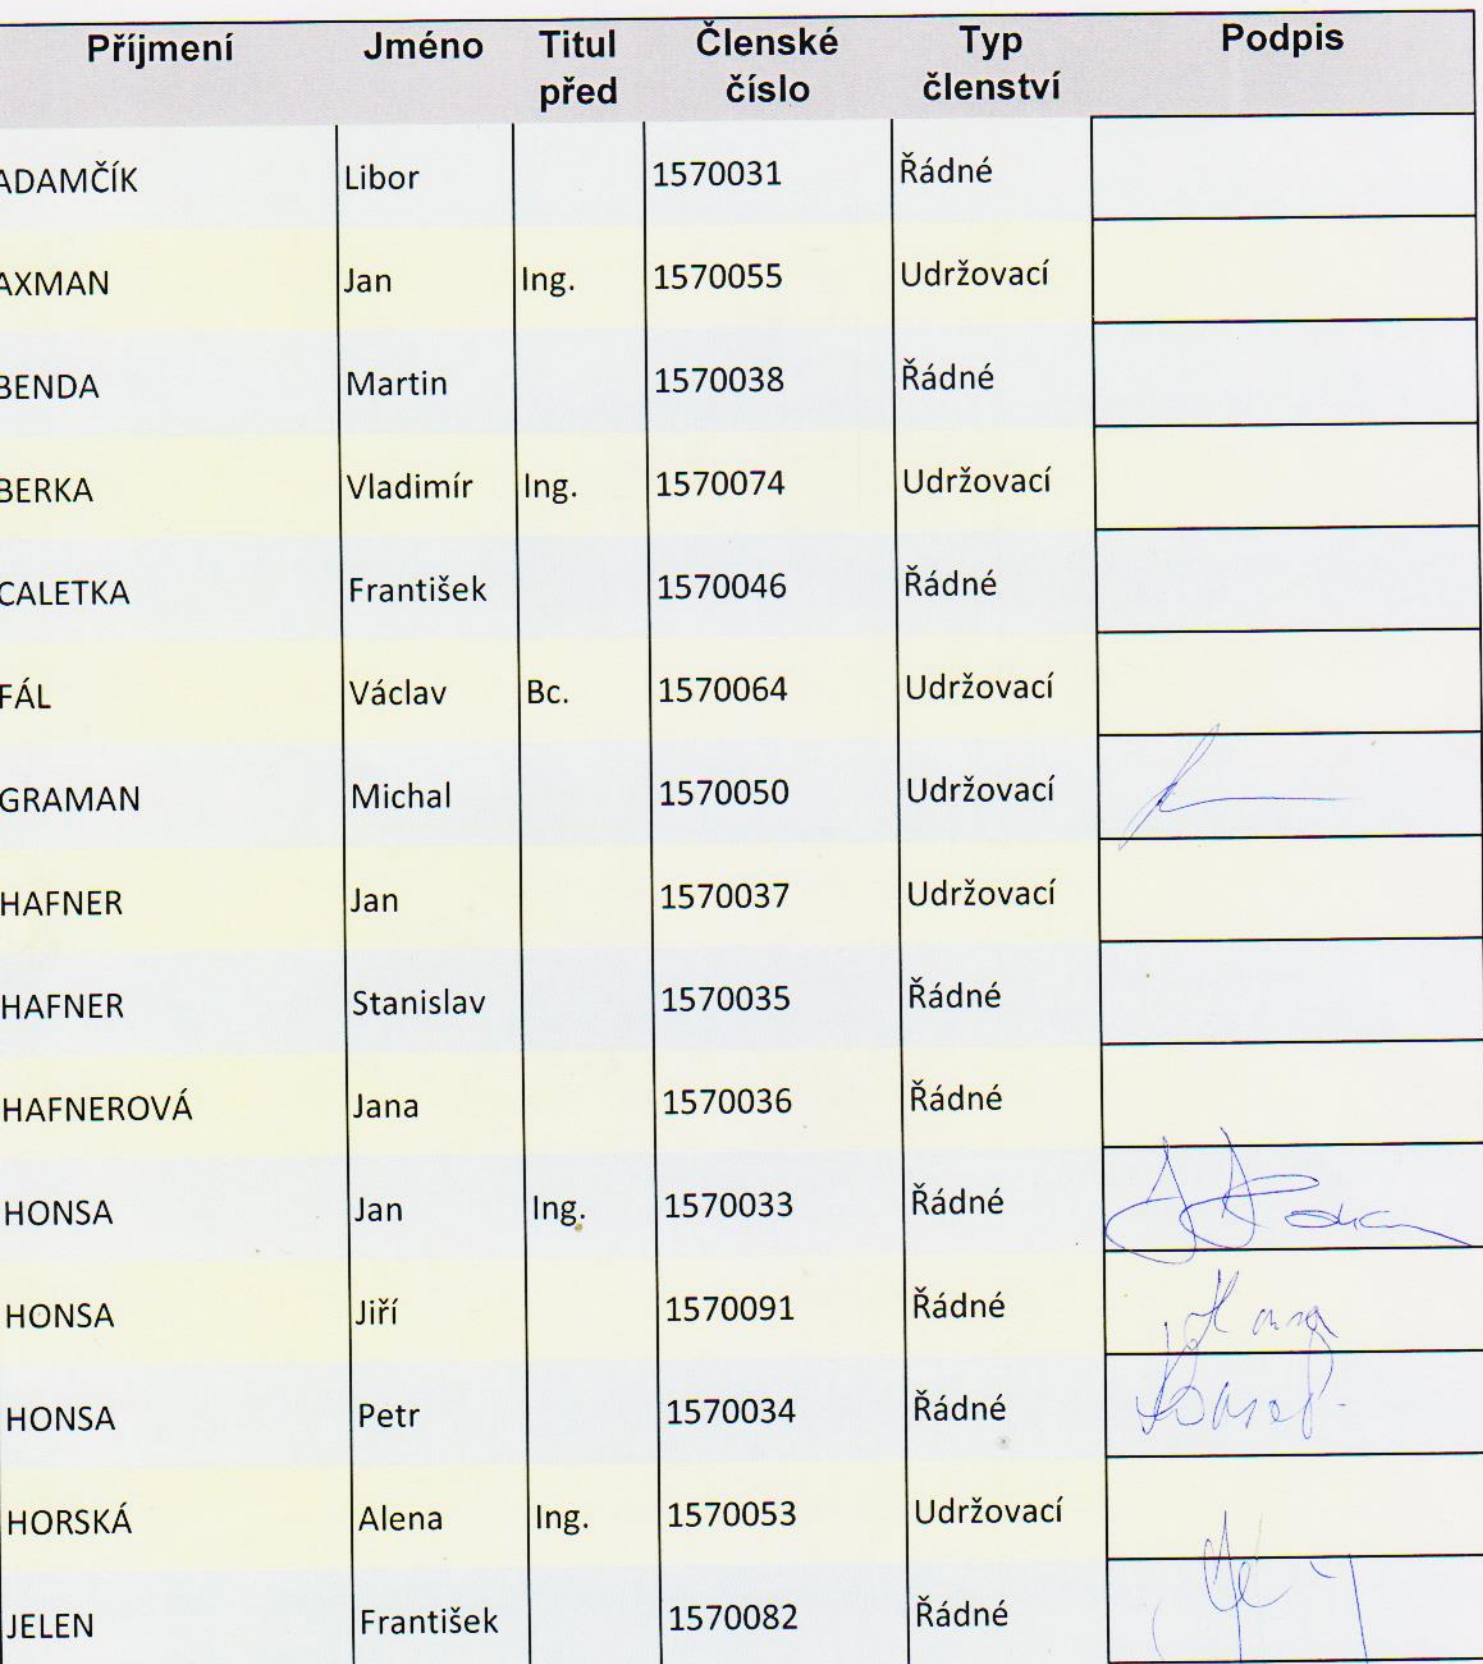 Příjmení Jméno Titul před Členské číslo Typ členství Podpis
ADAMČÍK Libor 1570031 Řádné
AXMAN Jan Ing. 1570055 Udržovací
BENDA Martin 1570038 Řádné
BERKA Vladimír Ing. 1570074 Udržovací
CALETKA František 1570046 Řádné
FÁL Václav Bc. 1570064 Udržovací
GRAMAN Michal 1570050 Udržovací
HAFNER Jan 1570037 Udržovací
HAFNER Stanislav 1570035 Řádné
HAFNEROVÁ Jana 1570036 Řádné
HONSA Jan Ing. 1570033 Řádné
HONSA Jiří 1570091 Řádné
HONSA Petr 1570034 Řádné
HORSKÁ Alena Ing. 1570053 Udržovací
JELEN František 1570082 Řádné